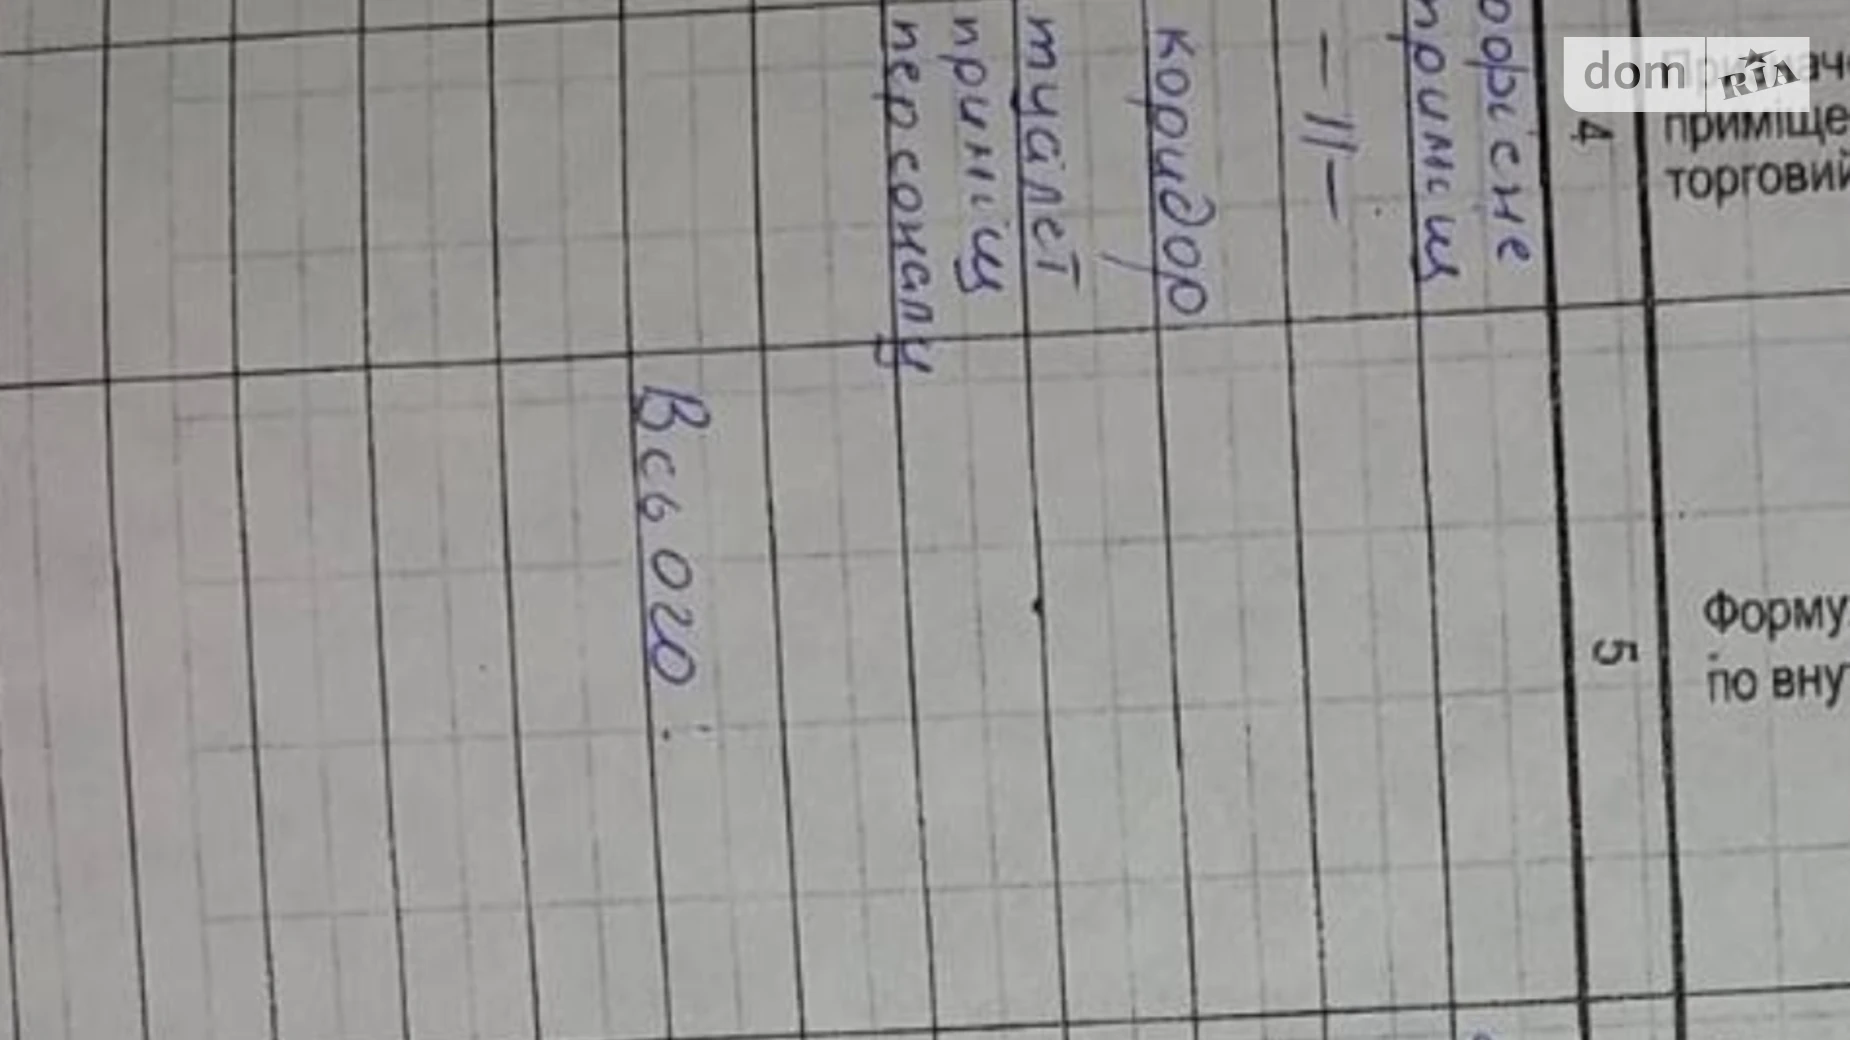 dom RIA
приміще
торговий
Форму
по вну
4
5
приміщ
-||-
коридор
туалет
приміщ
персоналу
Всього: